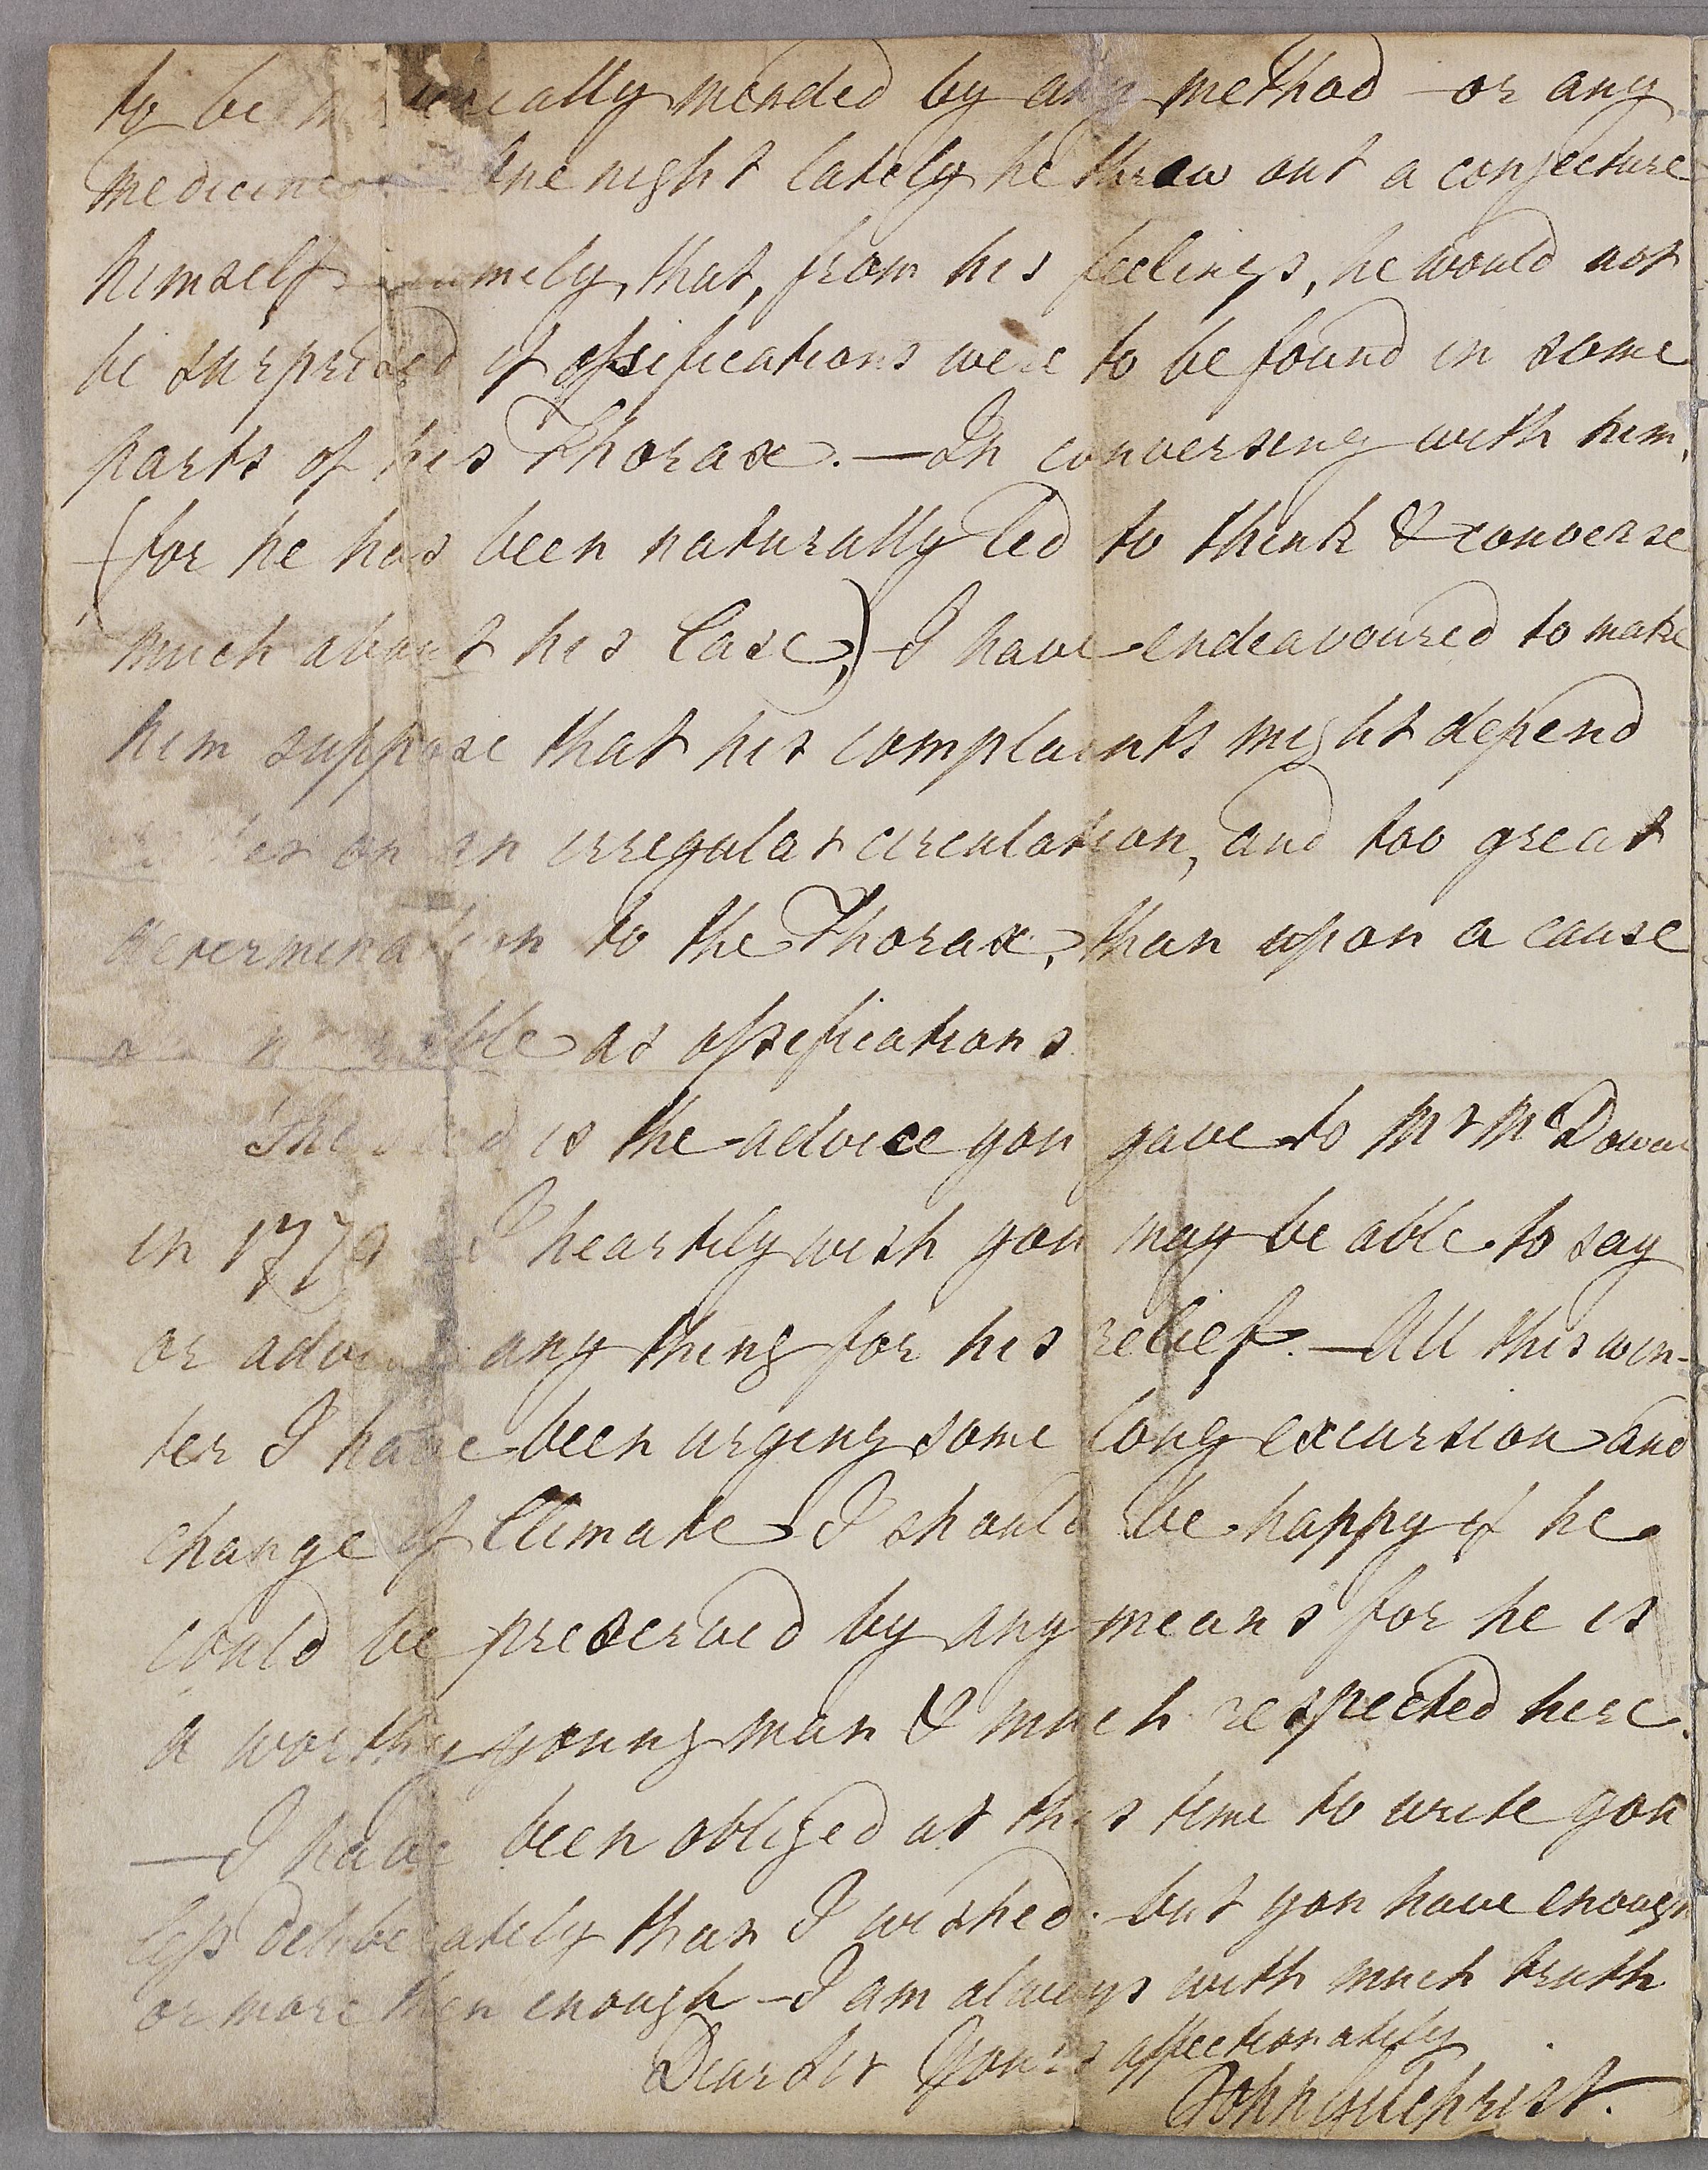 to be ically mended by any method - or any
medicine One night lately he threw out a conjecture
himself namely, that, from his feelings, he would not
be surprized if ossifications were to be found in some
parts of his Thorax. — In conversing with him,
(for he has been naturally led to think & converse
much about his Case,) I have endeavoured to make
him suppose that his complaints might depend
on an irregular circulation, and too great
determination to the Thorax, than upon a cause
as ossifications
is the advice you gave to Mr McDowal
in 177 I heartily wish you may be able to say
or advise any thing for his relief. — All this win-
ter I have been urging some long excursion and
change of Climate - I should be happy if he
could be preserved by any means for he is
a worthy young man & much respected here.
— I have been obliged at this time to write you
less deliberately than I wished. - but you have enough
or more then enough - I am always with much truth
Dear Sir Yours affectionately
John Gilchrist.